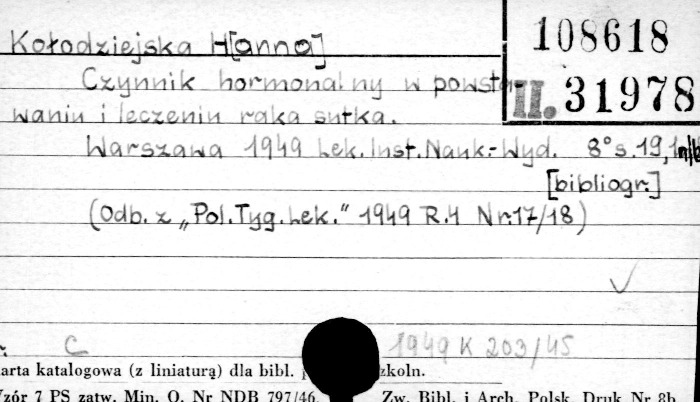 108618
Kołodziejska H[anna]
II. 31978
Czynnik hormonalny w powsta-
waniu i leczeniu raka sutka.
Warszawa 1949 Lek. Inst. Nauk.-Wyd. 8° s. 19,
[bibliogr.]
(Odb. z „Pol. Tyg. Lek." 1949 R.4 Nr 17/18)
C 1949 K 203/45
arta katalogowa (z liniaturą) dla bibl. zkoln.
Wzór 7 PS zatw. Min. O. Nr NDB 797/46. Zw. Bibl. i Arch. Polsk. Druk Nr 8b